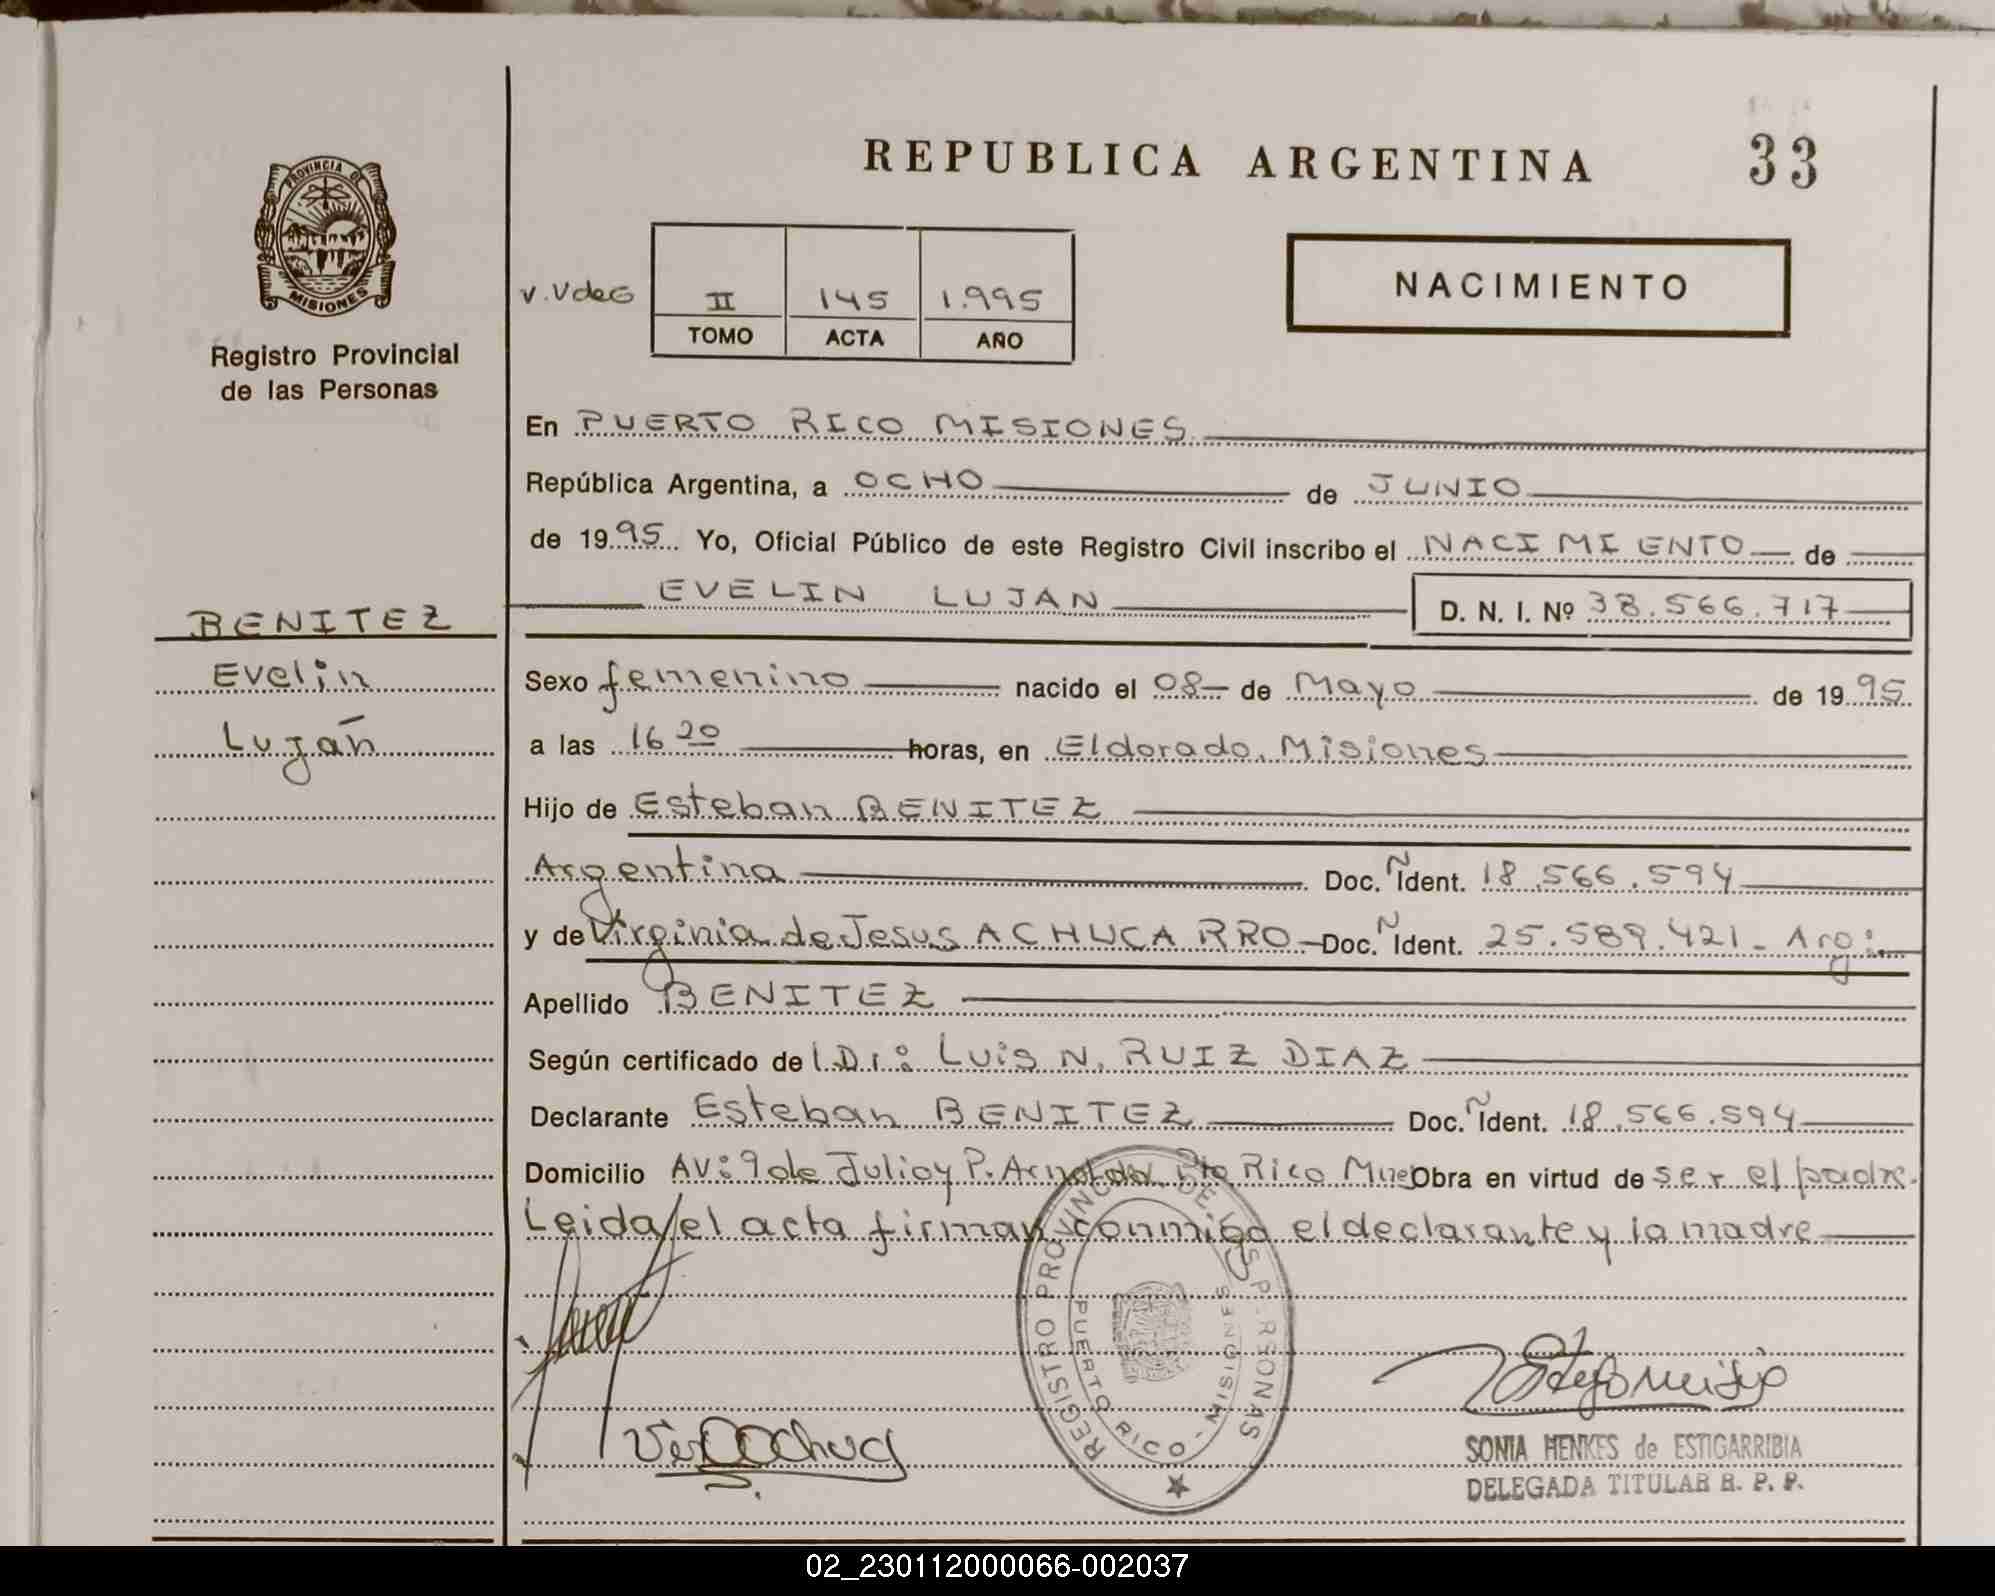 REPUBLICA ARGENTINA 33
PROVINCIA DE
MISIONES
Registro Provincial
de las Personas
v. VdeG
II 145 1.995
TOMO ACTA AÑO
NACIMIENTO
En PUERTO RICO MISIONES
República Argentina, a OCHO de JUNIO
de 1995 Yo, Oficial Público de este Registro Civil inscribo el NACIMIENTO de
EVELIN LUJAN D. N. I. Nº 38.566.717
BENITEZ
Evelin
Luján
Sexo femenino nacido el 08 de Mayo de 1995
a las 16 20 horas, en Eldorado, Misiones
Hijo de Esteban BENITEZ
Argentina Doc. Ident. 18.566.594
y de Virginia de Jesus ACHUCARRO Doc. Ident. 25.589.421 - Arg:
Apellido BENITEZ
Según certificado de l.D.r: Luis N. RUIZ DIAZ
Declarante Esteban BENITEZ Doc. Ident. 18.566.594
Domicilio AV: 9 de Julio y P. Arnoldo. Pto Rico Mnes Obra en virtud de ser el padre.
Leida el acta firman conmigo el declarante y la madre
REGISTRO PROVINCIAL DE LAS PERSONAS
PUERTO RICO - MISIONES
SONIA HENKES de ESTIGARRIBIA
DELEGADA TITULAR R. P. P.
02_230112000066-002037